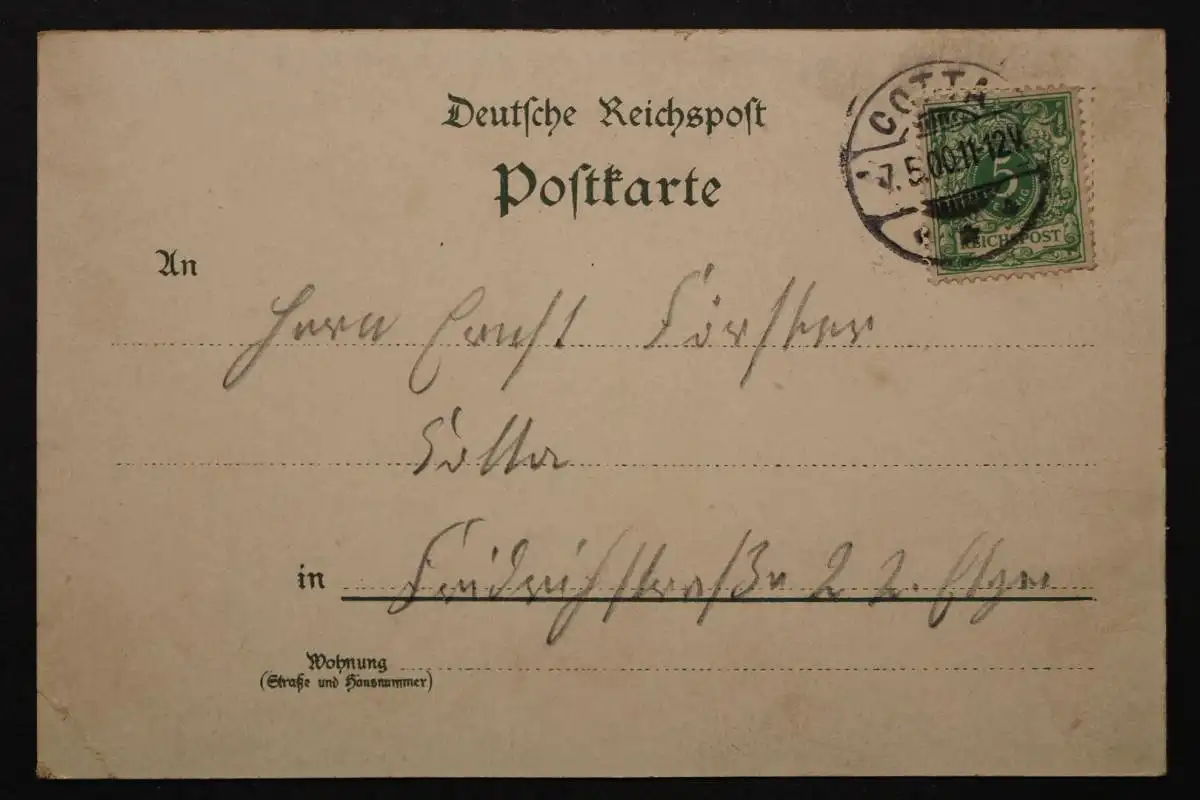 Deutsche Reichspost
Postkarte
COTTA
7.5.00.11-12V.
5
REICHSPOST
An
Herrn Ernst Förster
Cotta
in Friedrichstraße 22. Etgen
Wohnung
(Straße und Hausnummer)